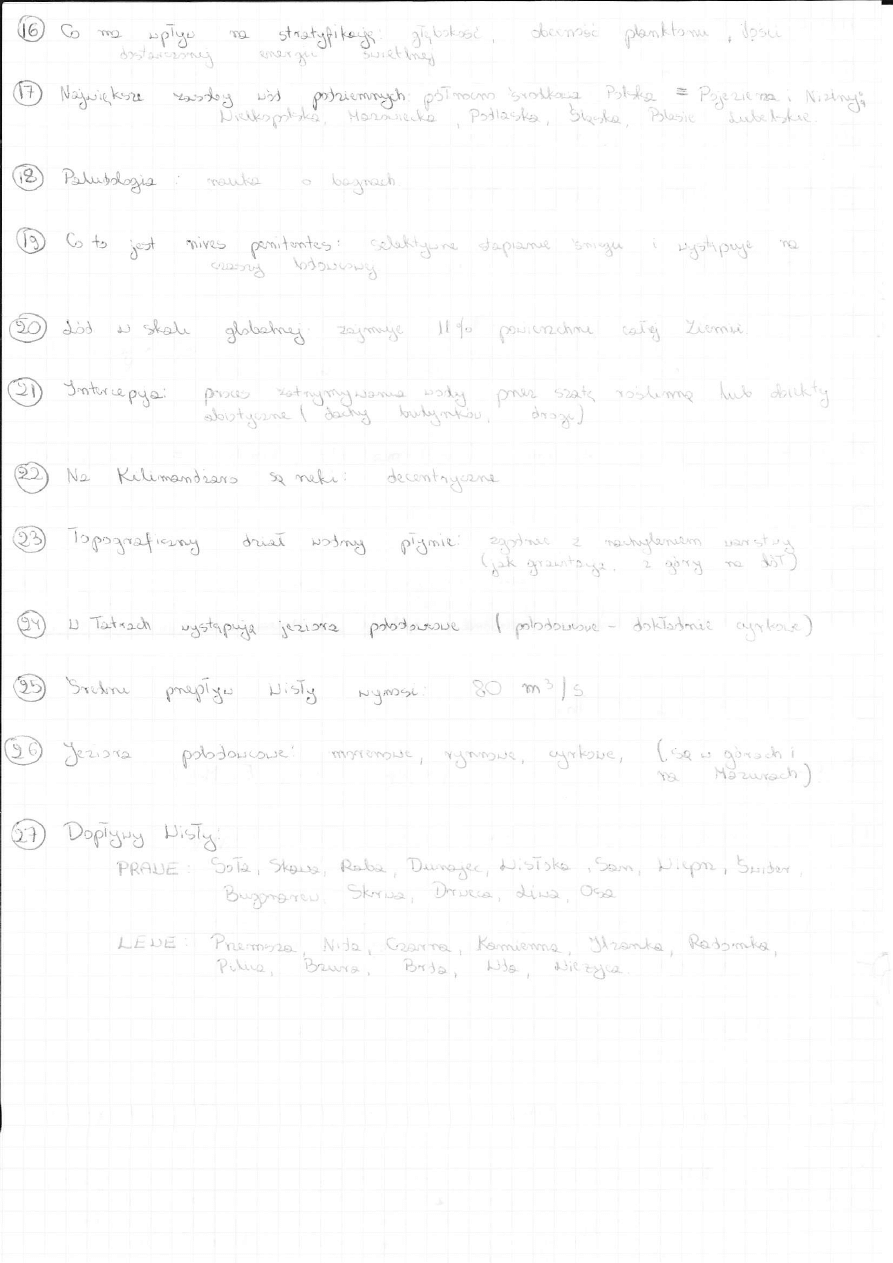 16 Co ma wpływ na stratyfikację: głębokość, obecność planktonu, ilości
dostarczonej energii świetlnej
17 Największe zasoby wód podziemnych: północn środkowa Polska = Pojezierza i Niziny:
Wielkopolska, Mazowiecka, Podlaska, Śląska, Polesie Lubelskie.
18 Paludologia: nauka o bagnach
19 Co to jest nives penitentes: selektywne stapianie śniegu i występuje na
czaszy lodowcowej
20 Lód w skali globalnej: zajmuje 11% powierzchni całej Ziemi
21 Intercepcja: proces zatrzymywania wody przez szatę roślinną lub obiekty
abiotyczne (dachy budynków, drogi)
22 Na Kilimandżaro są rzeki: decentryczne
23 Topograficzny dział wodny płynie: zgodnie z nachyleniem warstwy
(jak grawitacja, z góry na dół)
24 W Tatrach występują jeziora polodowcowe (polodowcowe - dokładnie cyrkowe)
25 Średni przepływ Wisły wynosi: 80 m³/s
26 Jeziora polodowcowe: morenowe, rynnowe, cyrkowe, (są w górach i
na Mazurach)
27 Dopływy Wisły:
PRAWE: Soła, Skawa, Raba, Dunajec, Wisłoka, San, Wieprz, Świder,
Bugonarew, Skrwa, Drwęca, Liwa, Osa
LEWE: Przemsza, Nida, Czarna, Kamienna, Iłżanka, Radomka,
Pilica, Bzura, Brda, Wda, Wierzyca.